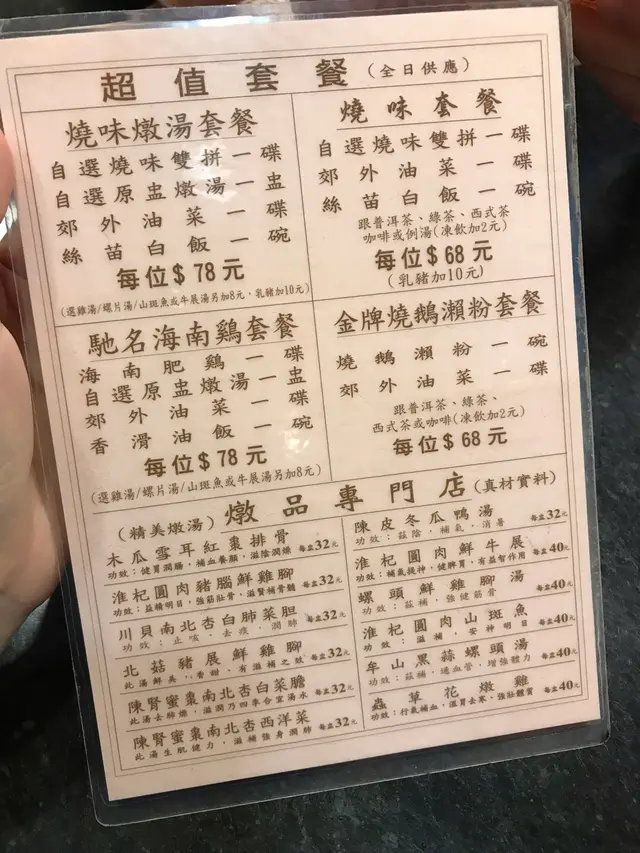 超值套餐(全日供應)
燒味燉湯套餐
自選燒味雙拼一碟
自選原盅燉湯一盅
郊外油菜一碟
絲苗白飯一碗
每位$78元
(選雞湯/螺片湯/山斑魚或牛展湯另加8元,乳豬加10元)
燒味套餐
自選燒味雙拼一碟
郊外油菜一碟
絲苗白飯一碗
跟普洱茶、綠茶、西式茶
咖啡或例湯(凍飲加2元)
每位$68元
(乳豬加10元)
馳名海南鷄套餐
海南肥鷄一碟
自選原盅燉湯一盅
郊外油菜一碟
香滑油飯一碗
每位$78元
(選雞湯/螺片湯/山斑魚或牛展湯另加8元)
金牌燒鵝瀨粉套餐
燒鵝瀨粉一碗
郊外油菜一碟
跟普洱茶、綠茶、
西式茶或咖啡(凍飲加2元)
每位$68元
(精美燉湯)燉品專門店(真材實料)
木瓜雪耳紅棗排骨 每盅32元
功效:健胃潤腸,補血養顏,滋陰潤燥
淮杞圓肉豬腦鮮雞腳 每盅32元
功效:益精明目,強筋壯骨,滋腎補骨髓
川貝南北杏白肺菜胆 每盅32元
功效:止咳,去痰,潤肺
北菇豬展鮮雞腳 每盅32元
此湯鮮美,香甜,有滋補之效
陳腎蜜棗南北杏白菜膽 每盅32元
此湯去肺燥,滋潤乃四季合宜湯水
陳腎蜜棗南北杏西洋菜 每盅32元
此湯生肌健力,滋補強身潤肺
陳皮冬瓜鴨湯 每盅32元
功效:滋陰,補氣,消暑
淮杞圓肉鮮牛展 每盅40元
功效:補氣提神,健脾胃,有益智作用
螺頭鮮雞腳湯 每盅40元
功效:滋補,強健筋骨
淮杞圓肉山斑魚 每盅40元
功效:滋補,安神明目
牟山黑蒜螺頭湯 每盅40元
功效:滋補,通血管,增強體力
蟲草花燉雞 每盅40元
功效:行氣補血,溫胃去寒,強壯體質